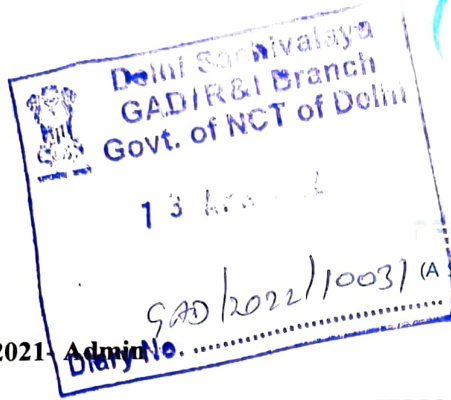 Delhi Sachivalaya
GAD/R&I Branch
Govt. of NCT of Delhi
13
GAD/2022/10031 (A
2021- Admin
Diary No. ....................